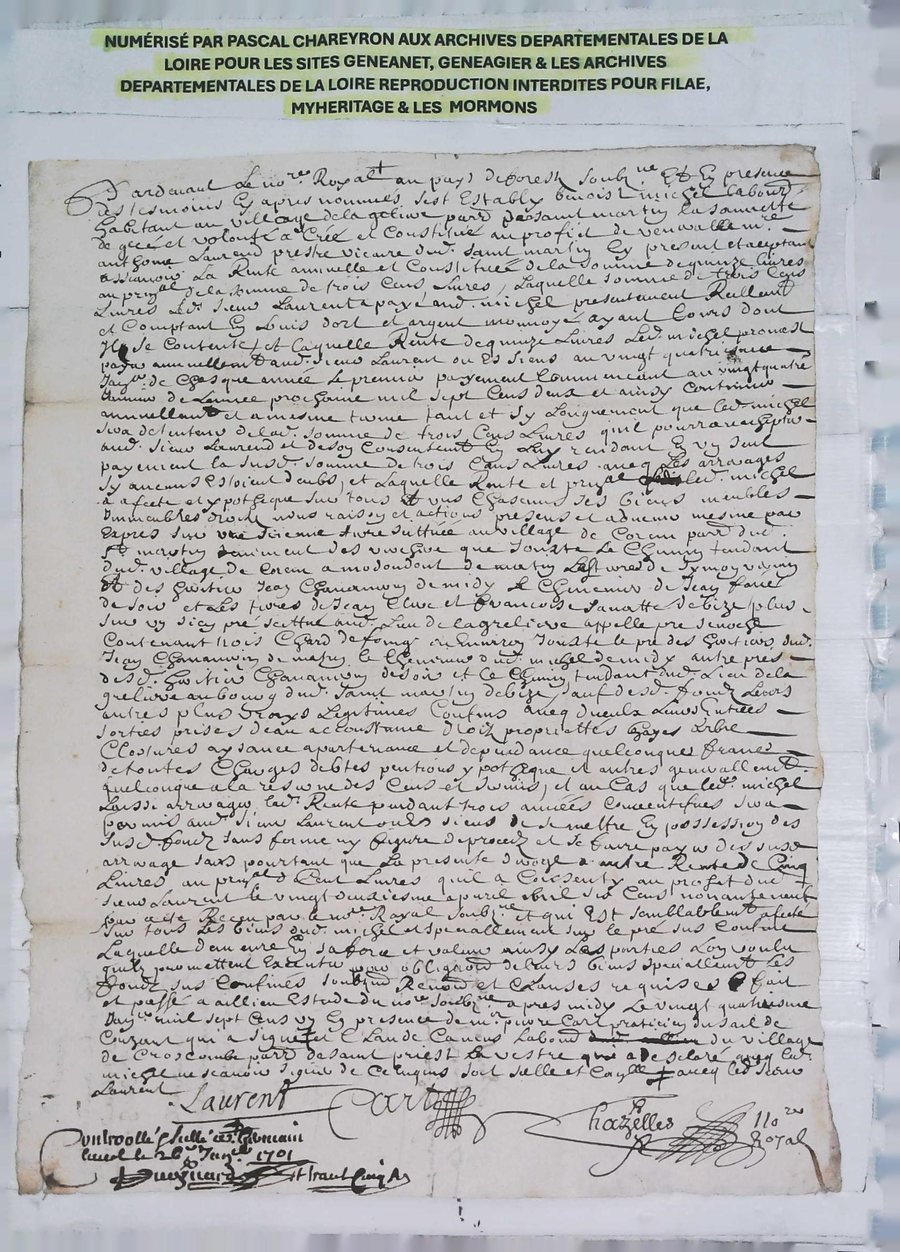 NUMÉRISÉ PAR PASCAL CHAREYRON AUX ARCHIVES DEPARTEMENTALES DE LA
LOIRE POUR LES SITES GENEANET, GENEAGIER & LES ARCHIVES
DEPARTEMENTALES DE LA LOIRE REPRODUCTION INTERDITES POUR FILAE,
MYHERITAGE & LES MORMONS
Pardevant Le nore Royal au pays de forest soubne Et En presence
des tesmoins Cy apres nommés, s'est Estably benoist michel labour
habitant au village de la parr de saint martin la sauveté
de gré et volonté a Créé et Constitué au proffit de venerable mre
anthome Laurend prestre vicaire dud. saint martin Cy present et acceptant
a scavoir La Rente annuelle et Constituée de la somme de quinze livres
au prinal de la somme de trois Cens Livres, Laquelle somme de trois Cens
Livres Led. sieur Laurent a payé aud. michel presentement Reellement
et Comptant En Louis dort et argent monnoyé ayant Cours dont
Il se Contente, et laquelle Rente de quinze Livres Led. michel promest
payer annuellemt aud. sieur Laurent ou Es siens au vingt quatriesme
janvier de Chasque année Le premier payement Commencant au vingtquatre
janvier de Lannée prochaine mil sept Cens deux et ainsy Continuer
annuellemt et a mesme terme tant et sy Longuement que led. michel
sera detenteur de lad. somme de trois Cens Livres quil pourra
aud. sieur Laurend et de son Consentemt En Luy rendant En un seul
payement la susd. somme de trois Cens Livres avecq Les arrerages
sy aucuns Estoient deubs, et Laquelle Rente et prinal led. michel
a afecté et ypothequé sur tous Et uns Chascuns ses biens meubles
Immeubles droits noms raisons et actions presens et advenir mesme par
Expres sur une sienne terre scittuée au village de Corent parr dud.
St martin que Jouxte Le Chemin tendant
dud. village de Corent a de matin Les terres de
Et des hoirs Jean Chanamon de midy Le Chenevier de Jean
de soir et Les terres de Jean et francois de bize plus
sur un sien pré scittué aud. Lieu de la greliere appellé pré
Contenant trois Chard de foing ou Environ Jouxte le pré des hoirs dud.
Jean Chanamon de matin le Chenevier dud. michel de midy autre pres
desd. hoirs Chanamon de soir et le Chemin tendant dud. Lieu de la
greliere au bourg dud. saint martin de bize, sauf desd. fondz Leurs
autres plus vrays Legitimes Confins avecq dueubs Leurs Entrées
sorties prises deau accoustumé droits proprietés hayes arbre
Clostures aysance apartenance et dependance quelconque franc
de toutes Charges debtes pentions ypotheque et autres generallemt
quelconque a la reserve des Cens et servis, et au Cas que led. michel
Laisse arrerager lad. Rente pendant trois années Consecutifves sera
permis aud. sieur Laurent ou Es siens de se mettre En possession des
susd. fondz sans forme ny figure de procez et se faire payer des susd.
arrerage sans pourtant que La presente derroge a autre Rente de Cinq
Livres au prinal de Cent Livres quil a Consenty au profit dud.
sieur Laurent le vingt apvril mil six Cens nonanteneuf
par acte Receu par le nore Royal soubne et qui Est semblablement afecté
sur tous Les biens dud. michel et speciallement sur le pré sus Confiné
Laquelle demeure En sa force et valeur ainsy Les parties Lon voulu
quils promettent Executer par obligaon de leurs biens speciallemt Les
fondz sus Confinés soubmon Renon et Clauses requises fait
et passé a aillieu Estude du nore soubne apres midy Le vingt quatriesme
Janver mil sept Cens un En presence de mre pierre Cart praticien du sail de
Couzant qui a signé Et Claude labour du village
de Croscombe parr de saint priest la vestre qui a declaré avecq led.
michel ne scavoir signer de Ce Enquis soit scellé et avecq led. sieur
Laurent
Laurent Cart Chazelles Nore Royal
Controllé & scellé a St. Germain
Laval le 26e Janver 1701